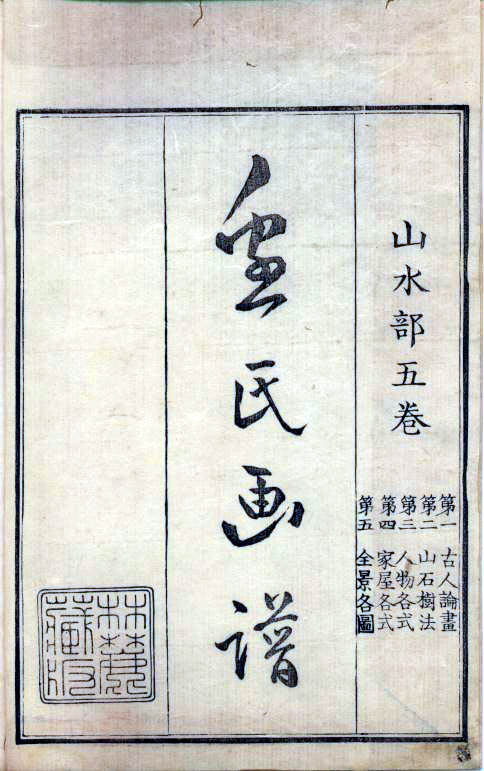 山水部五巻
第一 古人論畫
第二 山石樹法
第三 人物各式
第四 家屋各式
第五 全景各圖
氏画譜